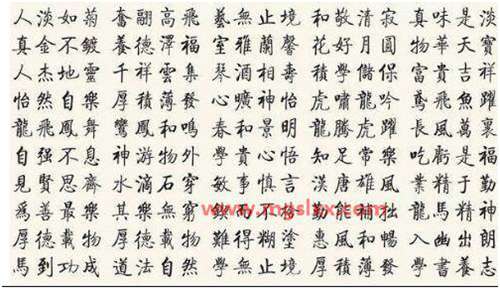 人淡如菊 奮翮高飛 藝無止境 和敬清寂 真味是淡
真金不鍍 養德澤福 室雅蘭馨 花好月圓 物華天寶
人杰地靈 千祥雲集 琴酒相壽 積學儲保 富貴吉祥
怡然自樂 厚積薄發 心曠神怡 虎嘯龍吟 鳶飛魚躍
龍飛鳳舞 鸞鳳和鳴 春和景明 龍騰虎躍 長風萬裏
自强不息 神游物外 學貴心悟 知足常樂 吃虧是福
見賢思齊 水滴石穿 敏事慎言 漢唐雄風 業精于勤
爲善最樂 其樂無窮 勤能補拙 龍馬精神
厚德載物 厚德載物 難得糊塗 惠風和暢 入幽出朗
馬到功成 道法自然 學無止境 厚積薄發 學書養志